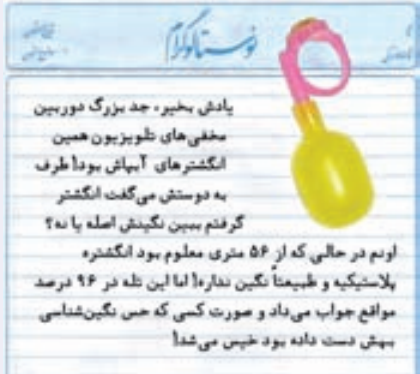 نوستالوگرام
یادش بخیر، جد بزرگ دوربین
مخفی‌های تلویزیون همین
انگشترهای آبپاش بود! طرف
به دوستش می‌گفت انگشتر
گرفتم ببین نگینش اصله یا نه؟
اونم در حالی که از ۵۶ متری معلوم بود انگشتره
پلاستیکیه و طبیعتاً نگین نداره! اما این تله در ۹۶ درصد
مواقع جواب می‌داد و صورت کسی که حس نگین‌شناسی
بهش دست داده بود خیس می‌شد!